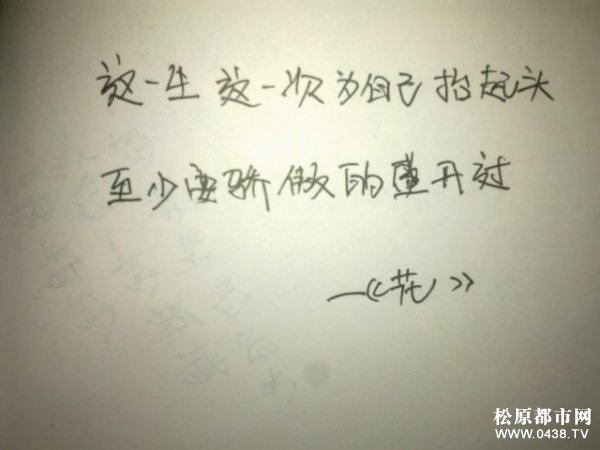 这一生 这一次为自己抬起头
至少要骄傲的盛开过
—《花》
松原都市网
WWW.0438.TV